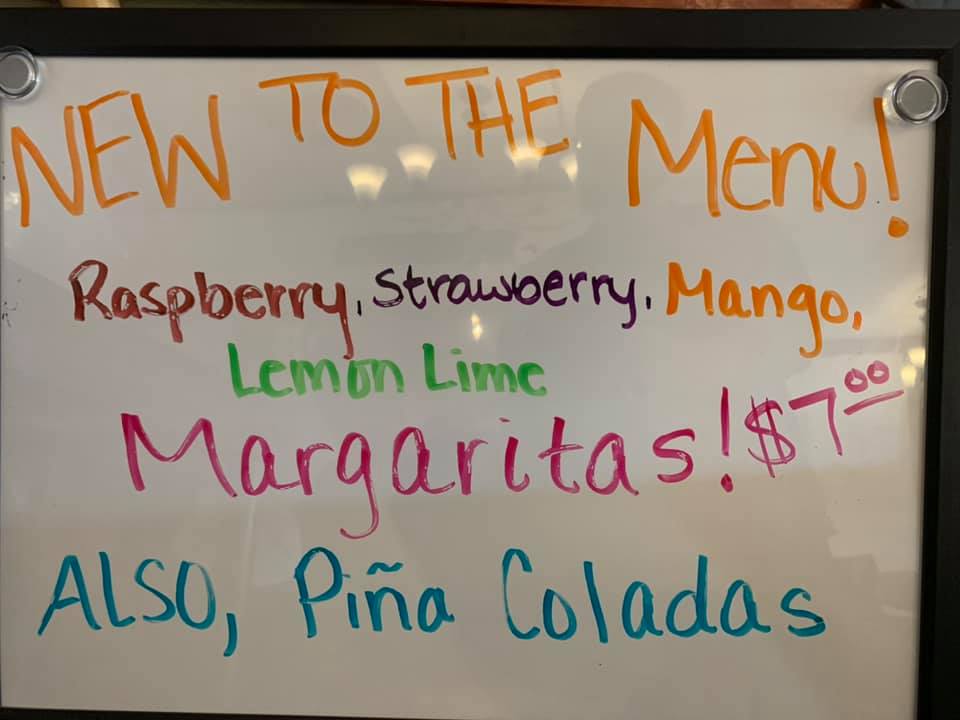 NEW TO THE Menu!
Raspberry, Strawberry, Mango,
Lemon Lime
Margaritas! $7.00
ALSO, Piña Coladas